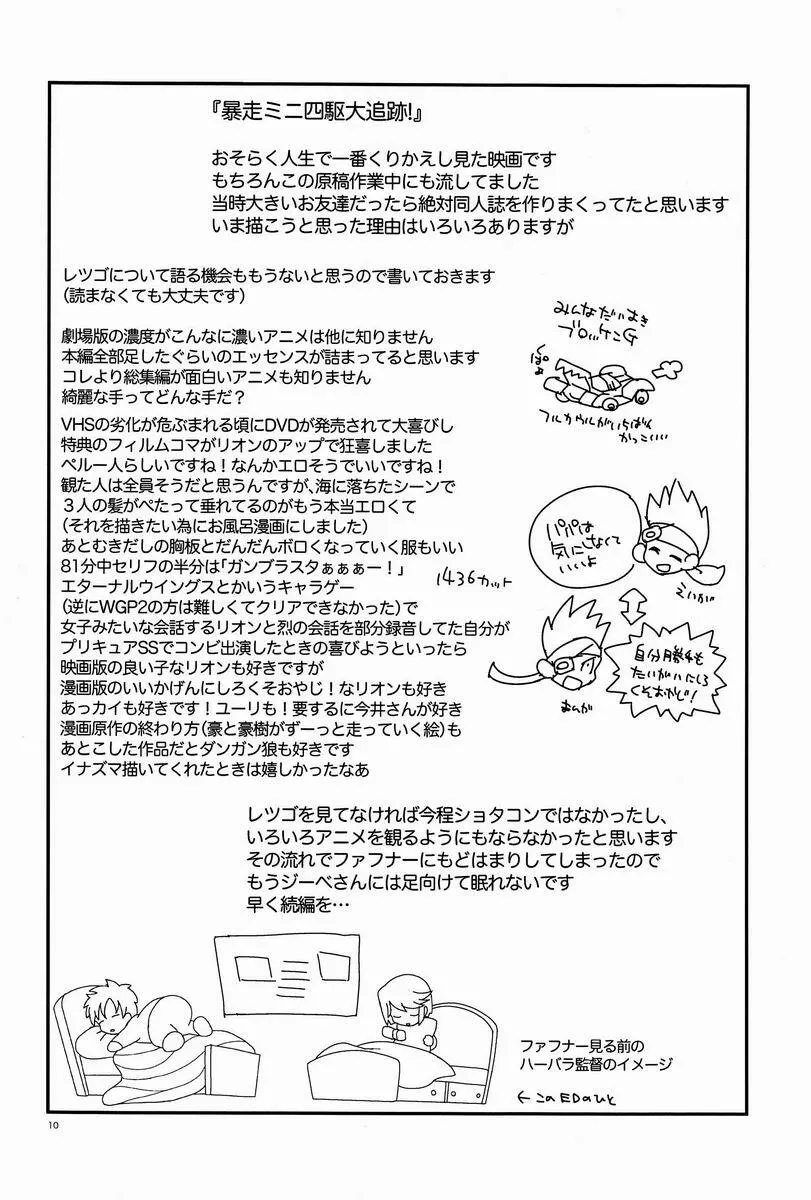 『暴走ミニ四駆大追跡!』
おそらく人生で一番くりかえし見た映画です
もちろんこの原稿作業中にも流してました
当時大きいお友達だったら絶対同人誌を作りまくってたと思います
いま描こうと思った理由はいろいろありますが
レツゴについて語る機会ももうないと思うので書いておきます
（読まなくても大丈夫です）
劇場版の濃度がこんなに濃いアニメは他に知りません
本編全部足したぐらいのエッセンスが詰まってると思います
コレより総集編が面白いアニメも知りません
綺麗な手ってどんな手だ？
みんなだいすき
ブロッケンG
フルカウルがいちばん
かっこいい
VHSの劣化が危ぶまれる頃にDVDが発売されて大喜びし
特典のフィルムコマがリオンのアップで狂喜しました
ペルー人らしいですね！なんかエロそうでいいですね！
観た人は全員そうだと思うんですが、海に落ちたシーンで
３人の髪がぺたって垂れてるのがもう本当エロくて
（それを描きたい為にお風呂漫画にしました）
あとむきだしの胸板とだんだんボロくなっていく服もいい
81分中セリフの半分は「ガンブラスタぁぁぁー！」
1436カット
エターナルウイングスとかいうキャラゲー
（逆にWGP2の方は難しくてクリアできなかった）で
女子みたいな会話するリオンと烈の会話を部分録音してた自分が
プリキュアSSでコンビ出演したときの喜びようといったら
映画版の良い子なリオンも好きですが
漫画版のいいかげんにしろくそおやじ！なリオンも好き
あっカイも好きです！ユーリも！要するに今井さんが好き
漫画原作の終わり方（豪と豪樹がずーっと走っていく絵）も
あとこした作品だとダンガン狼も好きです
イナズマ描いてくれたときは嬉しかったなあ
パパは
気にしなくて
いいよ
えいが
自分勝手も
たいがいにしろ
くそおやじ！
まんが
レツゴを見てなければ今程ショタコンではなかったし、
いろいろアニメを観るようにもならなかったと思います
その流れでファフナーにもどはまりしてしまったので
もうジーベさんには足向けて眠れないです
早く続編を…
ファフナー見る前の
ハーバラ監督のイメージ
←このEDのひと
10